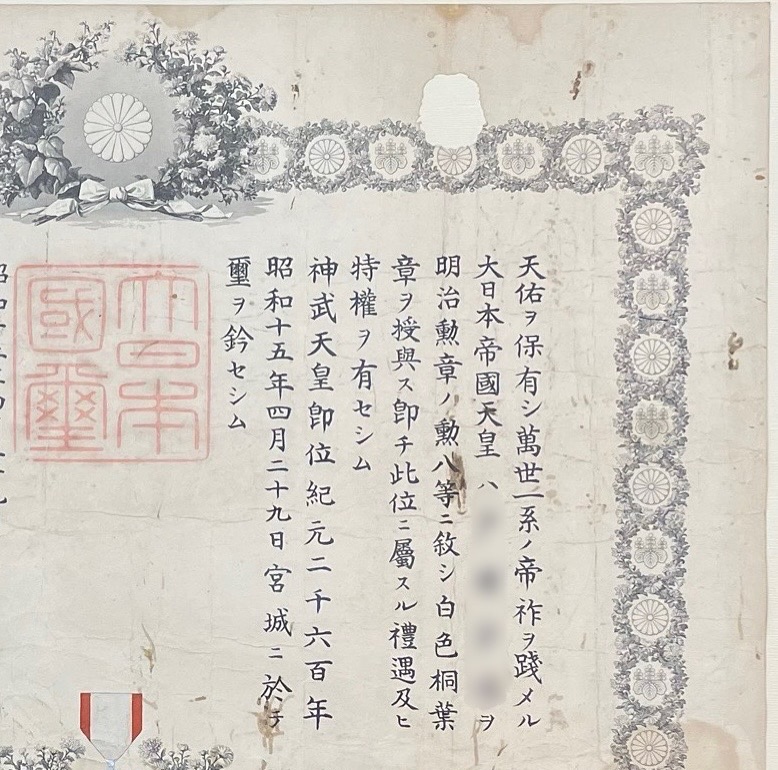 天佑ヲ保有シ萬世一系ノ帝祚ヲ踐メル
大日本帝國天皇ハ ヲ
明治勲章ノ勲八等ニ敘シ白色桐葉
章ヲ授與ス卽チ此位ニ屬スル禮遇及ヒ
特權ヲ有セシム
神武天皇卽位紀元二千六百年
昭和十五年四月二十九日宮城ニ於テ
璽ヲ鈐セシム
大日本
國璽